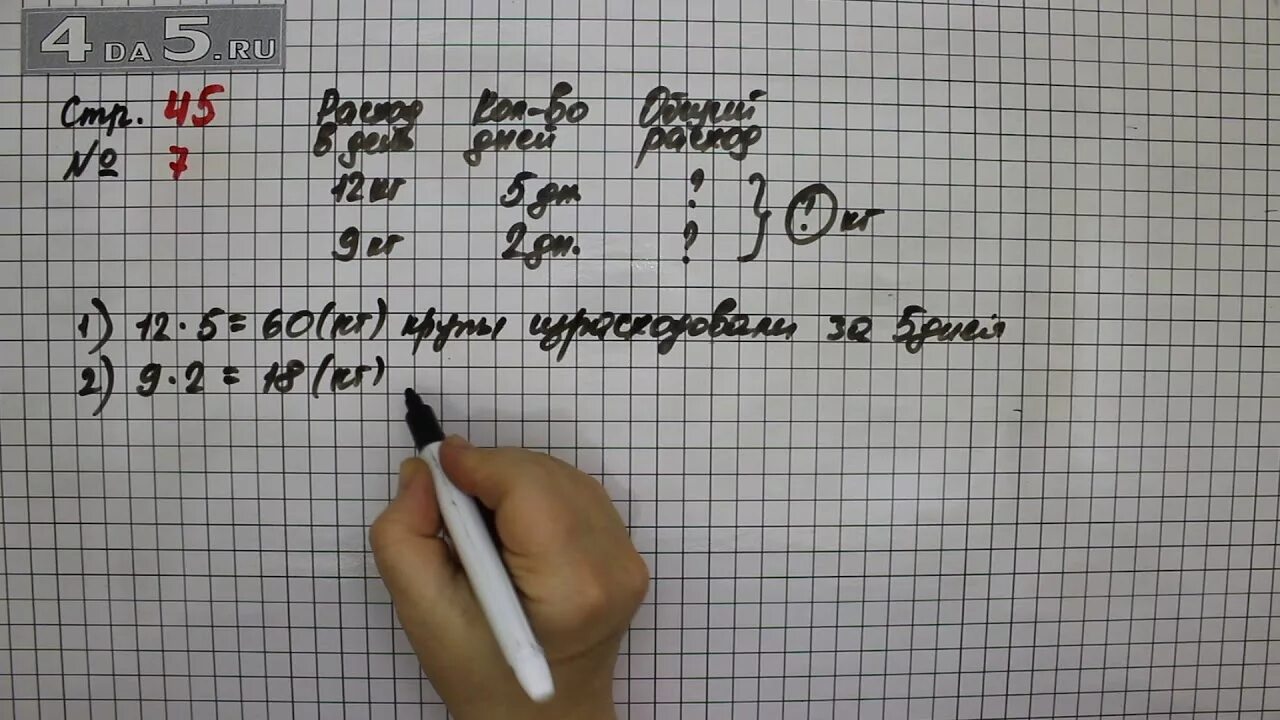 4DA5.RU
Стр. 45
№ 7
Расход в день Кол-во дней Общий расход
12 кг 5 дн. ? } ? кг
9 кг 2 дн. ?
1) 12 · 5 = 60 (кг) крупы израсходовали за 5 дней
2) 9 · 2 = 18 (кг)